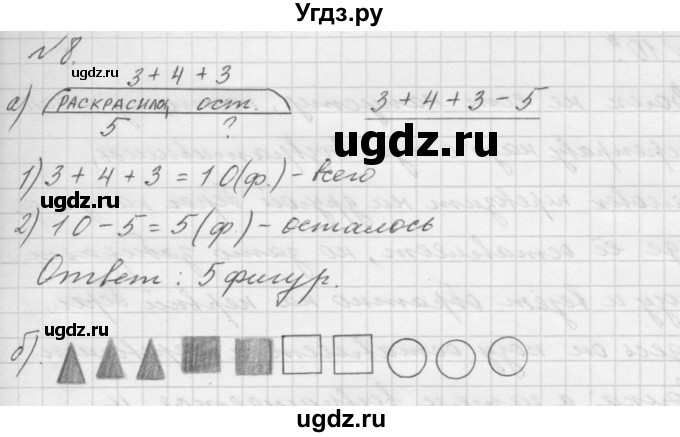 Угдз.ру
№8.
3 + 4 + 3
а) РАСКРАСИЛО ост.
5 ?
3 + 4 + 3 - 5
угдз.ru
1) 3 + 4 + 3 = 10 (ф.) - всего
угдз.ru
2) 10 - 5 = 5 (ф.) - осталось
Ответ: 5 фигур.
угдз.ru
б).
угдз.ru